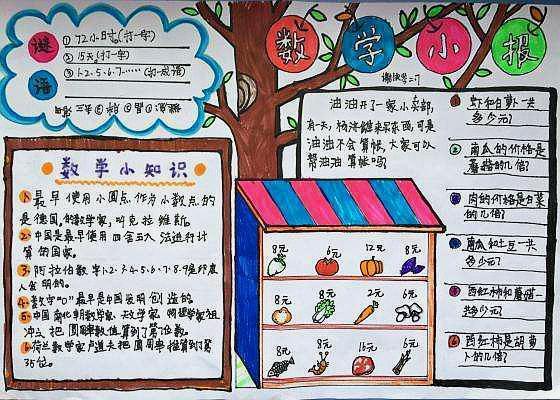 数学小报
谜语
① 72小时(打一字)
② 15天(打一字)
③ 1·2·5·6·7……(打一成语)
油油开了一家小卖部,
有一天,杨洋进来买东西,可是
油油不会算帐,大家可以
帮油油算帐吗?
数学小知识
1、最早使用小圆点作为小数点的
是德国的数学家,叫克拉维斯。
2、中国是最早使用四舍五入法进行计
算的国家。
3、阿拉伯数字1·2·3·4·5·6·7·8·9是印度
人发明的。
4、数字"0"最早是中国发明创造的。
5、中国南北朝数学家、天文学家、物理学家祖
冲之把圆周率数值算到了第七位数。
6、荷兰数学家卢道夫把圆周率推算到了第
35位。
8元 6元 12元 8元
8元 2元 2元 6元
8元 8元 16元 6元
① 虾和白萝卜一共
多少元?
② 南瓜的价格是
蘑菇的几倍?
肉的价格是白菜
的几倍?
南瓜和土豆一共
多少元?
西红柿和蘑菇一
共多少元?
西红柿是胡萝
卜的几倍?